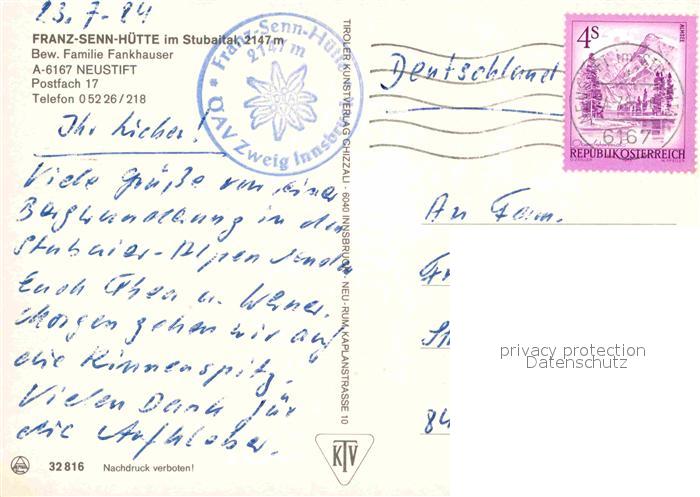 23.7.84
FRANZ-SENN-HÜTTE im Stubaital, 2147 m
Bew. Familie Fankhauser
A-6167 NEUSTIFT
Postfach 17
Telefon 0 52 26 / 218
Franz-Senn-Hütte
2147 m
ÖAV Zweig Innsbruck
Ihr Lieben!
Viele Grüße von einer
Bergwanderung in den
Stubaier-Alpen senden
Euch Thea u. Werner.
Morgen gehen wir auf
die Rinnenspitz.
Vielen Dank für
die
32 816 Nachdruck verboten!
TIROLER KUNSTVERLAG CHIZZALI · 6040 INNSBRUCK, NEU-RUM, KAPLANSTRASSE 10
KTV
Deutschland
4S
ALMSEE
6167
REPUBLIK ÖSTERREICH
An Fam.
Fr
St
84
privacy protection
Datenschutz